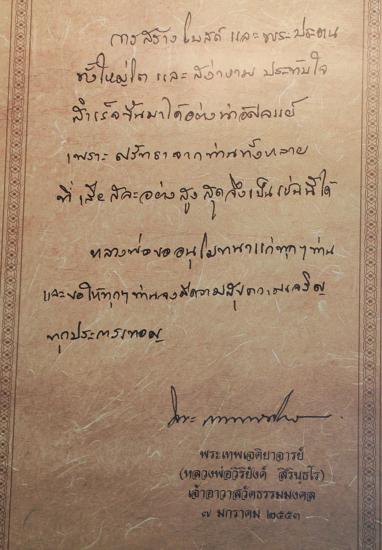 การสร้างโบสถ์ และพระประธาน
ทั้งใหญ่โต และสง่างาม ประทับใจ
สำเร็จขึ้นมาได้อย่างน่าอัศจรรย์
เพราะ ศรัทธาจากท่านทั้งหลาย
ที่เสียสละอย่างสูงสุดจึงเป็นเช่นนี้ได้
หลวงพ่อขออนุโมทนาแก่ทุกๆท่าน
และขอให้ทุกๆท่านจงมีความสุขความเจริญ
ทุกประการเทอญ
พระเทพเจติยาจารย์
(หลวงพ่อวิริยังค์ สิรินฺธโร)
เจ้าอาวาสวัดธรรมมงคล
๗ มกราคม ๒๕๕๓